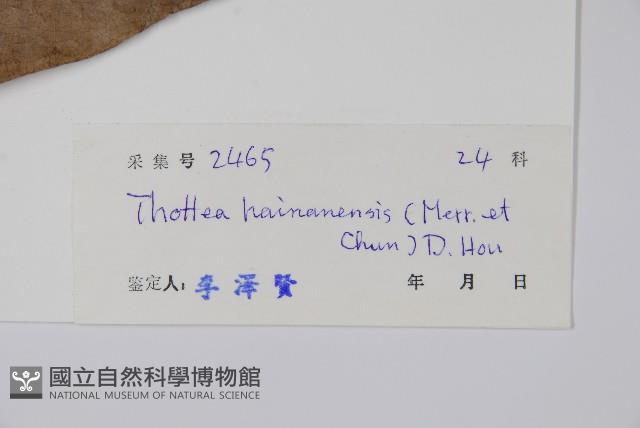 采集号 2465 24 科
Thottea hainanensis (Merr. et
Chun) D. Hou
鉴定人: 李泽賢 年 月 日
國立自然科學博物館
NATIONAL MUSEUM OF NATURAL SCIENCE